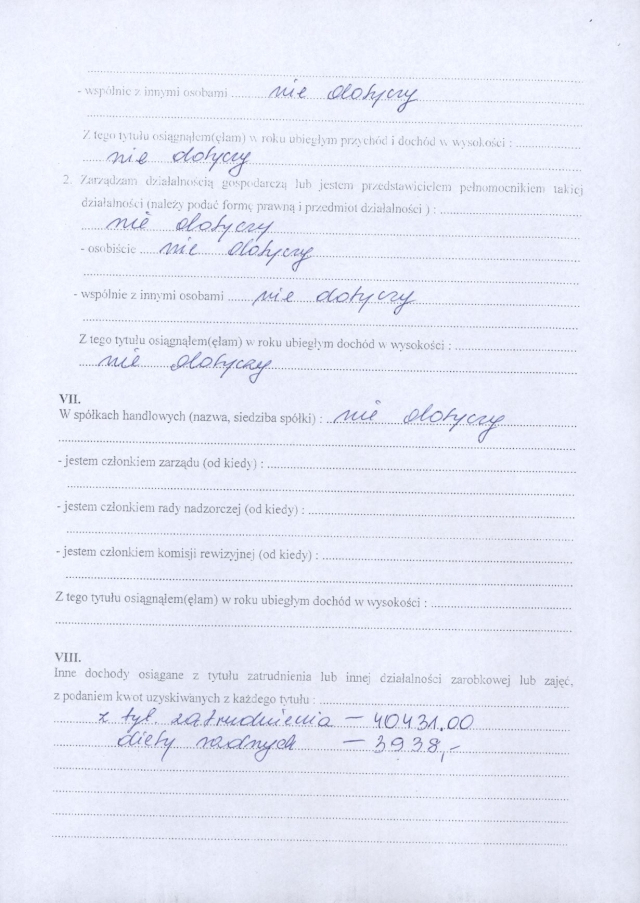 - wspólnie z innymi osobami ..... nie dotyczy
Z tego tytułu osiągnąłem(ęłam) w roku ubiegłym przychód i dochód w wysokości : .....
nie dotyczy
2. Zarządzam działalnością gospodarczą lub jestem przedstawicielem pełnomocnikiem takiej
działalności (należy podać formę prawną i przedmiot działalności ) : .....
nie dotyczy
- osobiście ..... nie dotyczy
- wspólnie z innymi osobami ..... nie dotyczy
Z tego tytułu osiągnąłem(ęłam) w roku ubiegłym dochód w wysokości : .....
nie dotyczy
VII.
W spółkach handlowych (nazwa, siedziba spółki) : nie dotyczy
- jestem członkiem zarządu (od kiedy) : .....
- jestem członkiem rady nadzorczej (od kiedy) : .....
- jestem członkiem komisji rewizyjnej (od kiedy) : .....
Z tego tytułu osiągnąłem(ęłam) w roku ubiegłym dochód w wysokości : .....
VIII.
Inne dochody osiągane z tytułu zatrudnienia lub innej działalności zarobkowej lub zajęć,
z podaniem kwot uzyskiwanych z każdego tytułu : .....
z tyt. zatrudnienia – 40431,00
diety radnych – 3938,-